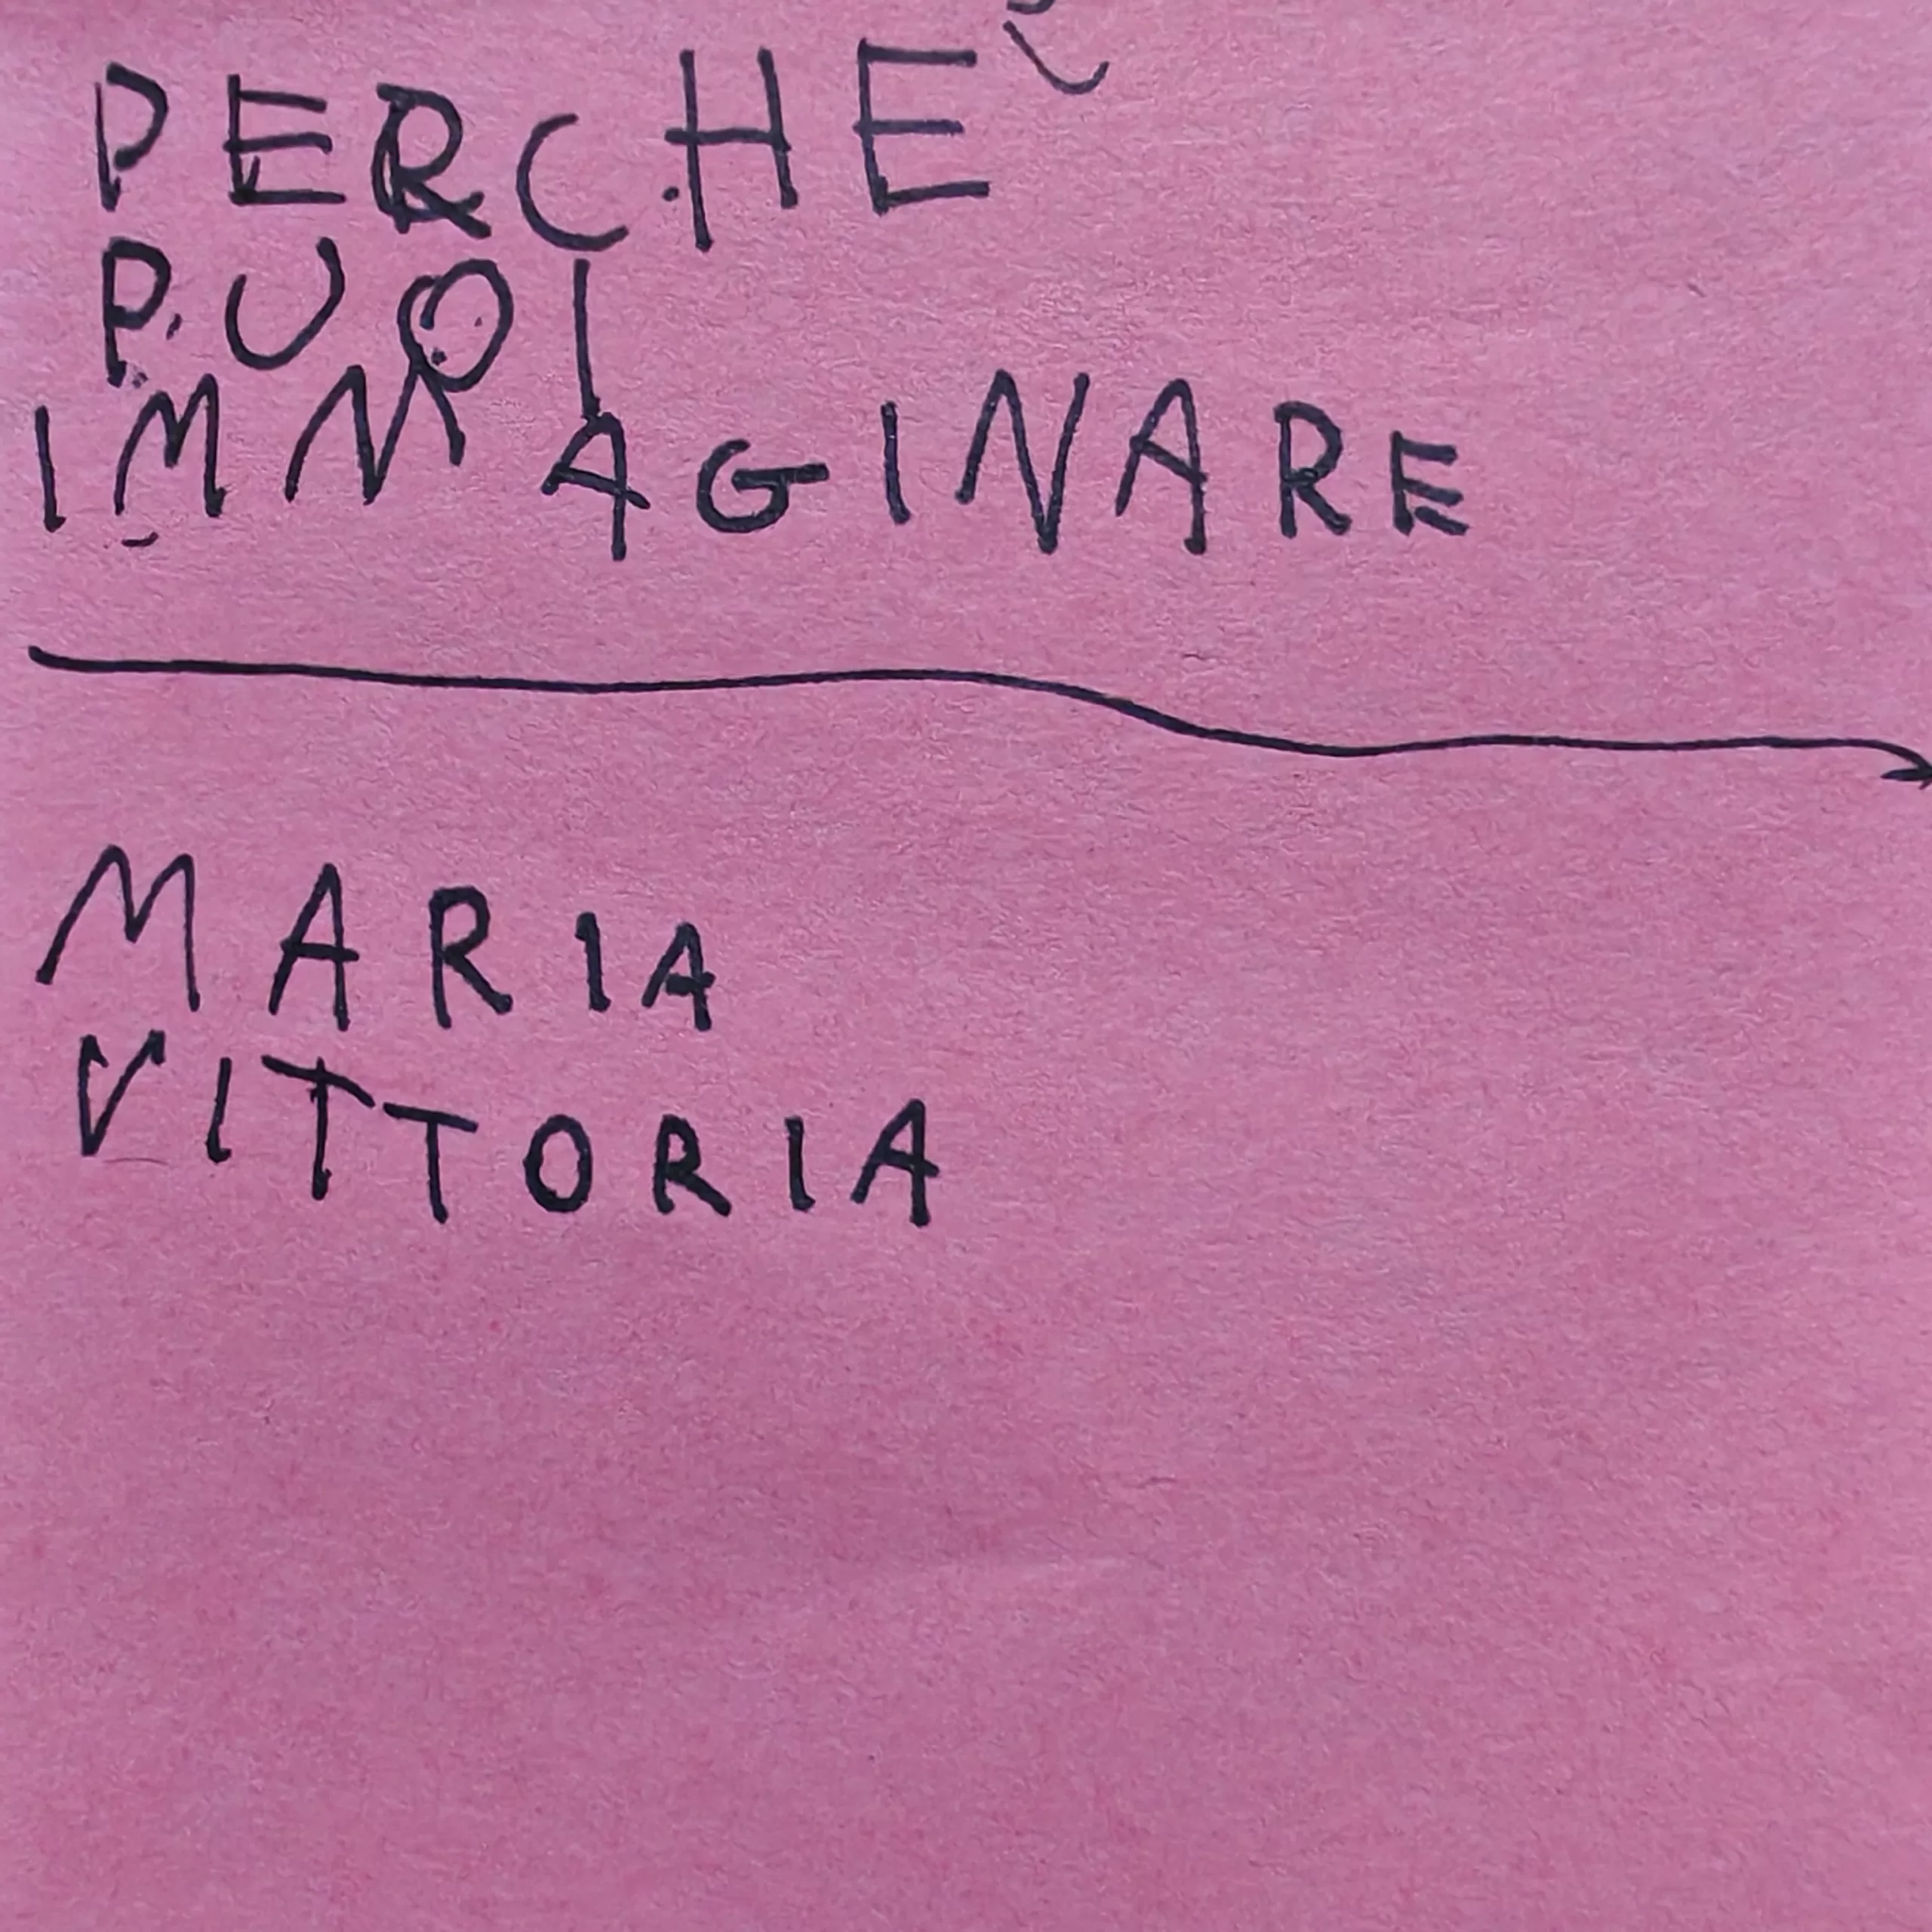 PERCHE
PUOI
IMMAGINARE
MARIA
VITTORIA